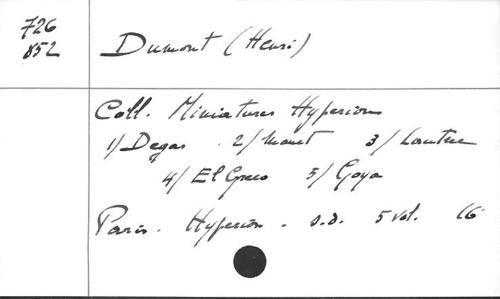 726
852
Dumont (Henri)
Coll. Miniatures Hyperion
1/ Degas 2/ Manet 3/ Lautrec
4/ El Greco 5/ Goya
Paris. Hyperion. s.d. 5 vol. 16